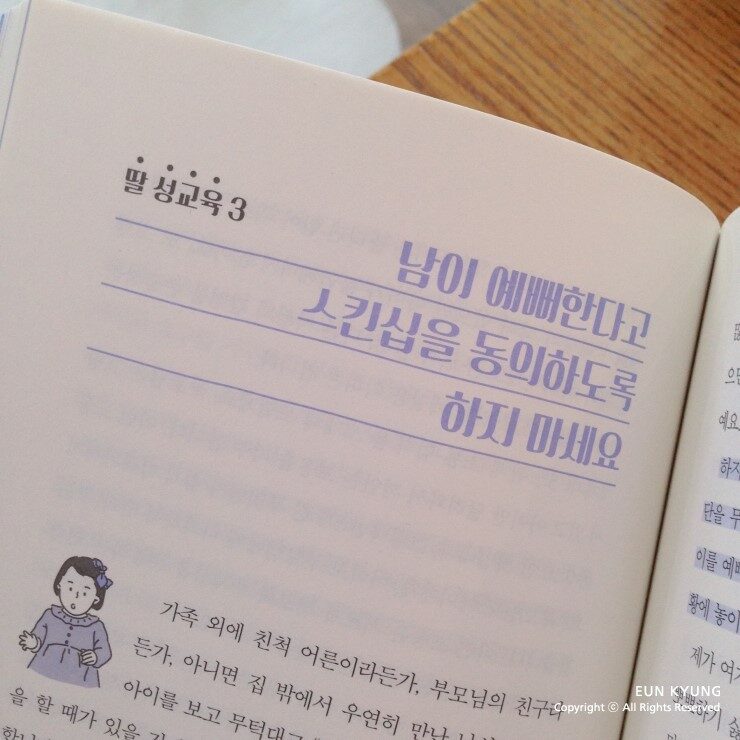 딸 성교육 3
남이 예뻐한다고
스킨십을 동의하도록
하지 마세요
가족 외에 친척 어른이라든가, 부모님의 친구라
든가, 아니면 집 밖에서 우연히 만난
아이를 보고 무턱대고
을 할 때가 있을
으면
예요.
하지
단을 무
이를 예뻐
황에 놓이
제가 여기
EUN KYUNG
Copyright ⓒ All Rights Reserved